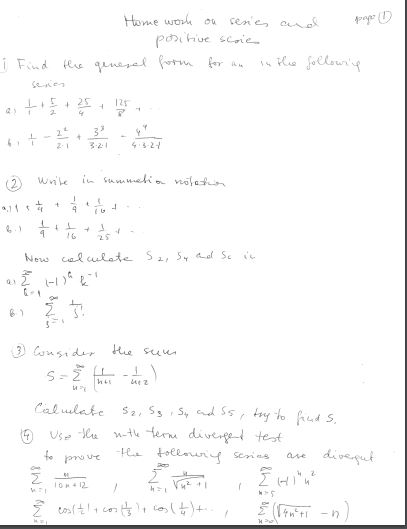 Home work on series and page ①
positive series
1 Find the general form for an in the following
series
a) 1/1 + 5/2 + 25/4 + 125/8 + ...
b) 1/1 - 2²/2·1 + 3³/3·2·1 - 4⁴/4·3·2·1
② Write in summation notation
a) 1 + 1/4 + 1/9 + 1/16 + ...
b) 1/9 + 1/16 + 1/25 + ...
Now calculate S₂, S₄ and in
a) ∞ Σ k=1 (-1)ᵏ k⁻¹
b) ∞ Σ 1/
③ Consider the sum
S = ∞ Σ n=1 (1/n+1 - 1/n+2)
Calculate S₂, S₃, S₄ and S₅, try to find S.
④ Use the n-th term divergent test
to prove the following series are divergent
∞ Σ n=1 n/10n+12 , ∞ Σ n=1 n/√n²+1 , ∞ Σ n=5 (-1)ⁿ n²
∞ Σ n=1 cos(1/2) + cos(1/3) + cos(1/4) + ... , ∞ Σ n=0 (√4n²+1 - n)